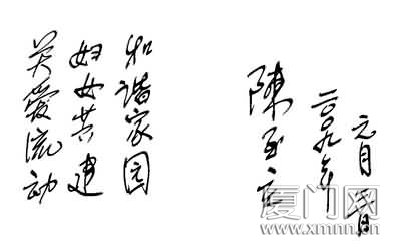 关爱流动
妇女共建
和谐家园
陳至立
二〇〇九年
元月
厦门网
www.xmnn.cn